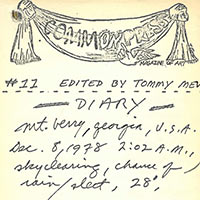 COMMONPRESS
MAGAZINE OF ART
#11 EDITED BY TOMMY MEW
— DIARY —
Mt. berry, georgia, U.S.A.
Dec. 8, 1978 2:02 A.M.,
sky clearing, chance of
rain/sleet, 28°,